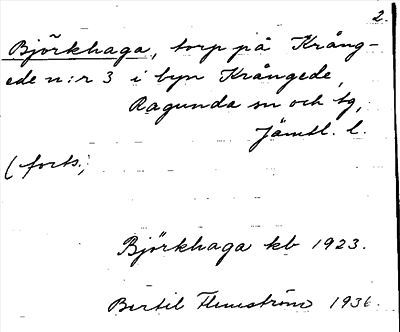 2.
Björkhaga, torp på Krång-
ede n:r 3 i byn Krångede,
Ragunda sn och tg,
Jämtl. l.
(forts.)
Björkhaga kb 1923.
Bertil Flemström 1936.